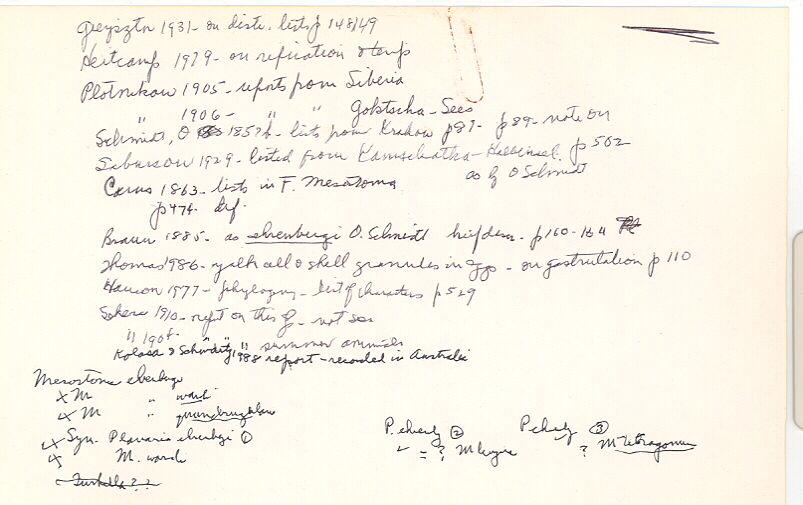 Gieysztor 1931 - on distr. lists p 148/49
Heitcamp 1979 - on respiration & temp
Plotnikow 1905 - reports from Siberia
" 1906 - " " Goktscha-Sees
Schmidt, O 1857 - lists from Krakow p 89 - note on
1929 - listed from Kamschatka-Halbinsel. p 502
as by O Schmidt
Carus 1863 - lists in F. Mesostoma
p 474 dif.
Braun 1885 - as ehrenbergi O. Schmidt brief descr - p 160-164
Thomas 1986 - yolk cell & shell granules in eggs - on gastrulation p 110
1977 - phylogeny - list of characters p 529
1910 - on this sp - not see
" 190 " summer animals
Kolasa & 1988 report - recorded in Australia
Mesostoma
x M " wardi
x M "
x Syn. Planaria ①
x M. wardi
Turbella ? ?
P. ② P ③
= ? M lingua ? M tetragonum